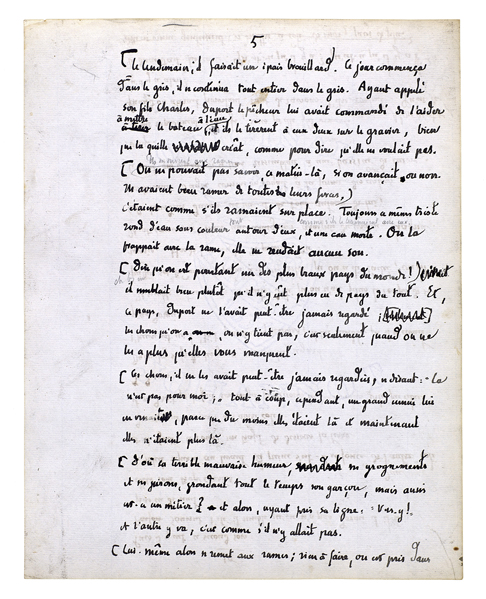 5
[ Le lendemain, il faisait un épais brouillard. Le jour commença
dans le gris, il continua tout entier dans le gris. Ayant appelé
son fils Charles, Duport le pêcheur lui avait commandé de l'aider
à mettre à l'eau
le bateau, et ils le tirèrent à eux deux sur le gravier, bien
que la quille criât, comme pour dire qu'elle ne voulait pas.
[ On ne pouvait pas savoir, ce matin-là, si on avançait ou non.
Ils avaient beau ramer de toutes leurs forces,
c'étaient comme s'ils ramaient sur place. Toujours ce même triste
rond d'eau sans couleur autour d'eux, et une eau morte. On la
frappait avec la rame, elle ne rendait aucun son.
[ Dire qu'on est pourtant un des plus beaux pays du monde!)
il semblait bien plutôt qu'il n'y eût plus eu de pays du tout. Et,
ce pays, Duport ne l'avait peut-être jamais regardé ;
les choses qu'on a, on n'y tient pas, c'est seulement quand on ne
les a plus qu'elles vous manquent.
[ Ces choses, il ne les avait peut-être jamais regardées, se disant : Ce
n'est pas pour moi ; tout à coup, cependant, un grand ennui lui
en venait, parce que du moins elles étaient là et maintenant
elles n'étaient plus là.
[ D'où sa terrible mauvaise humeur, ses grognements
et ses jurons, grondant tout le temps son garçon, mais aussi
est-ce un métier ? et alors, ayant pris sa ligne : Vas-y !
et l'autre y va, c'est comme s'il n'y allait pas.
[ Lui-même alors se remet aux rames ; rien à faire, on est pris dans